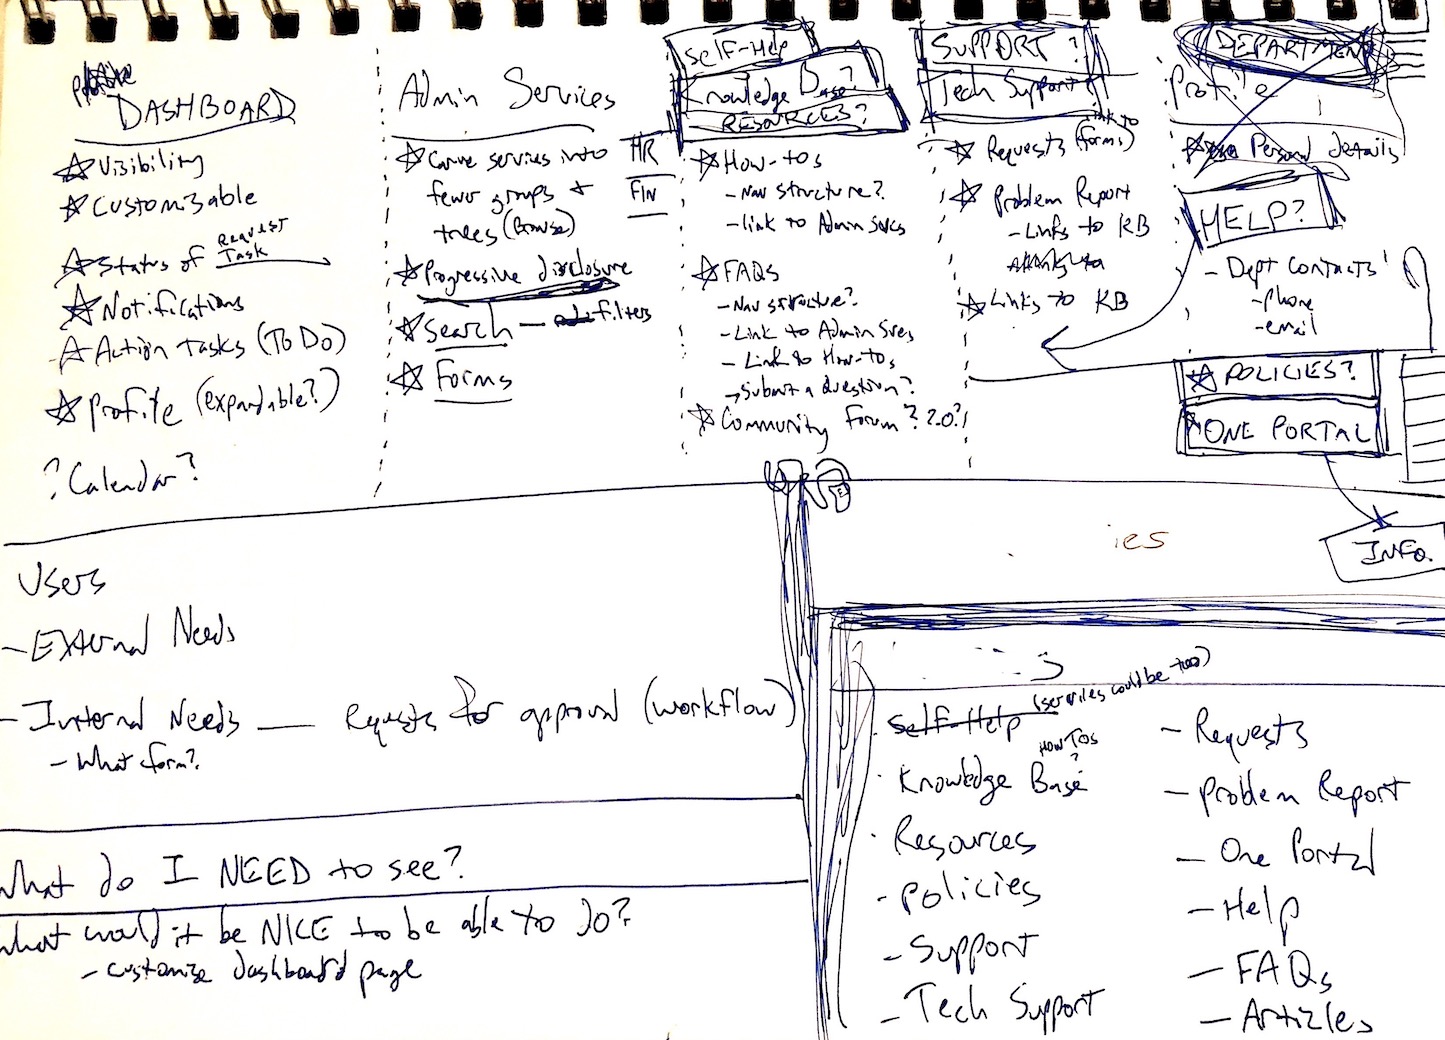 DASHBOARD
Visibility
Customizable
Status of Request Task
Notifications
Action tasks (To Do)
Profile (expandable?)
? Calendar?
Admin Services
Carve services into
fewer groups +
trees (Browse)
HR
FIN
Progressive disclosure
Search — filters
Forms
Self-Help
Knowledge Base?
RESOURCES?
How-tos
- Nav structure?
- link to Admin Svcs
FAQs
- Nav structure?
- Link to Admin Svcs
- Link to How-tos
Submit a Question?
Community Forum? 2.0?
SUPPORT?
Tech Support?
Requests (link to forms)
Problem Report
- Links to KB
Links to KB
DEPARTMENT
Profile
Personal details
HELP?
- Dept Contacts
- phone
- email
POLICIES?
ONE PORTAL
INFO.
Users
- External Needs
- Internal Needs — Requests for approval (workflow)
- What form?
What do I NEED to see?
What would it be NICE to be able to do?
- customize dashboard page
ies
Self-Help (services could be too)
Knowledge Base HOW TOS ?
Resources
- Policies
- Support
- Tech Support
- Requests
- Problem Report
- One Portal
- Help
- FAQs
- Articles